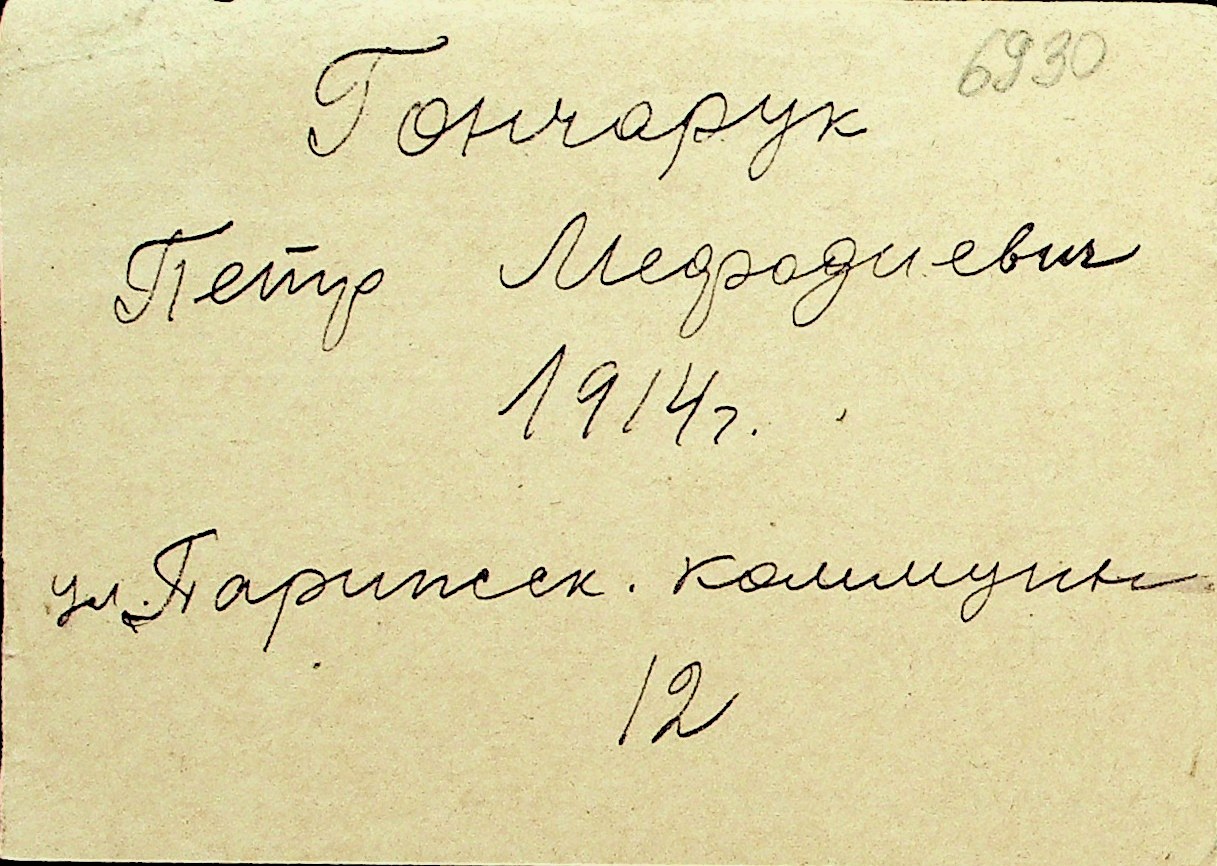 6930
Гончарук
Петр Мефодиевич
1914г.
ул. Парижск. коммуны
12